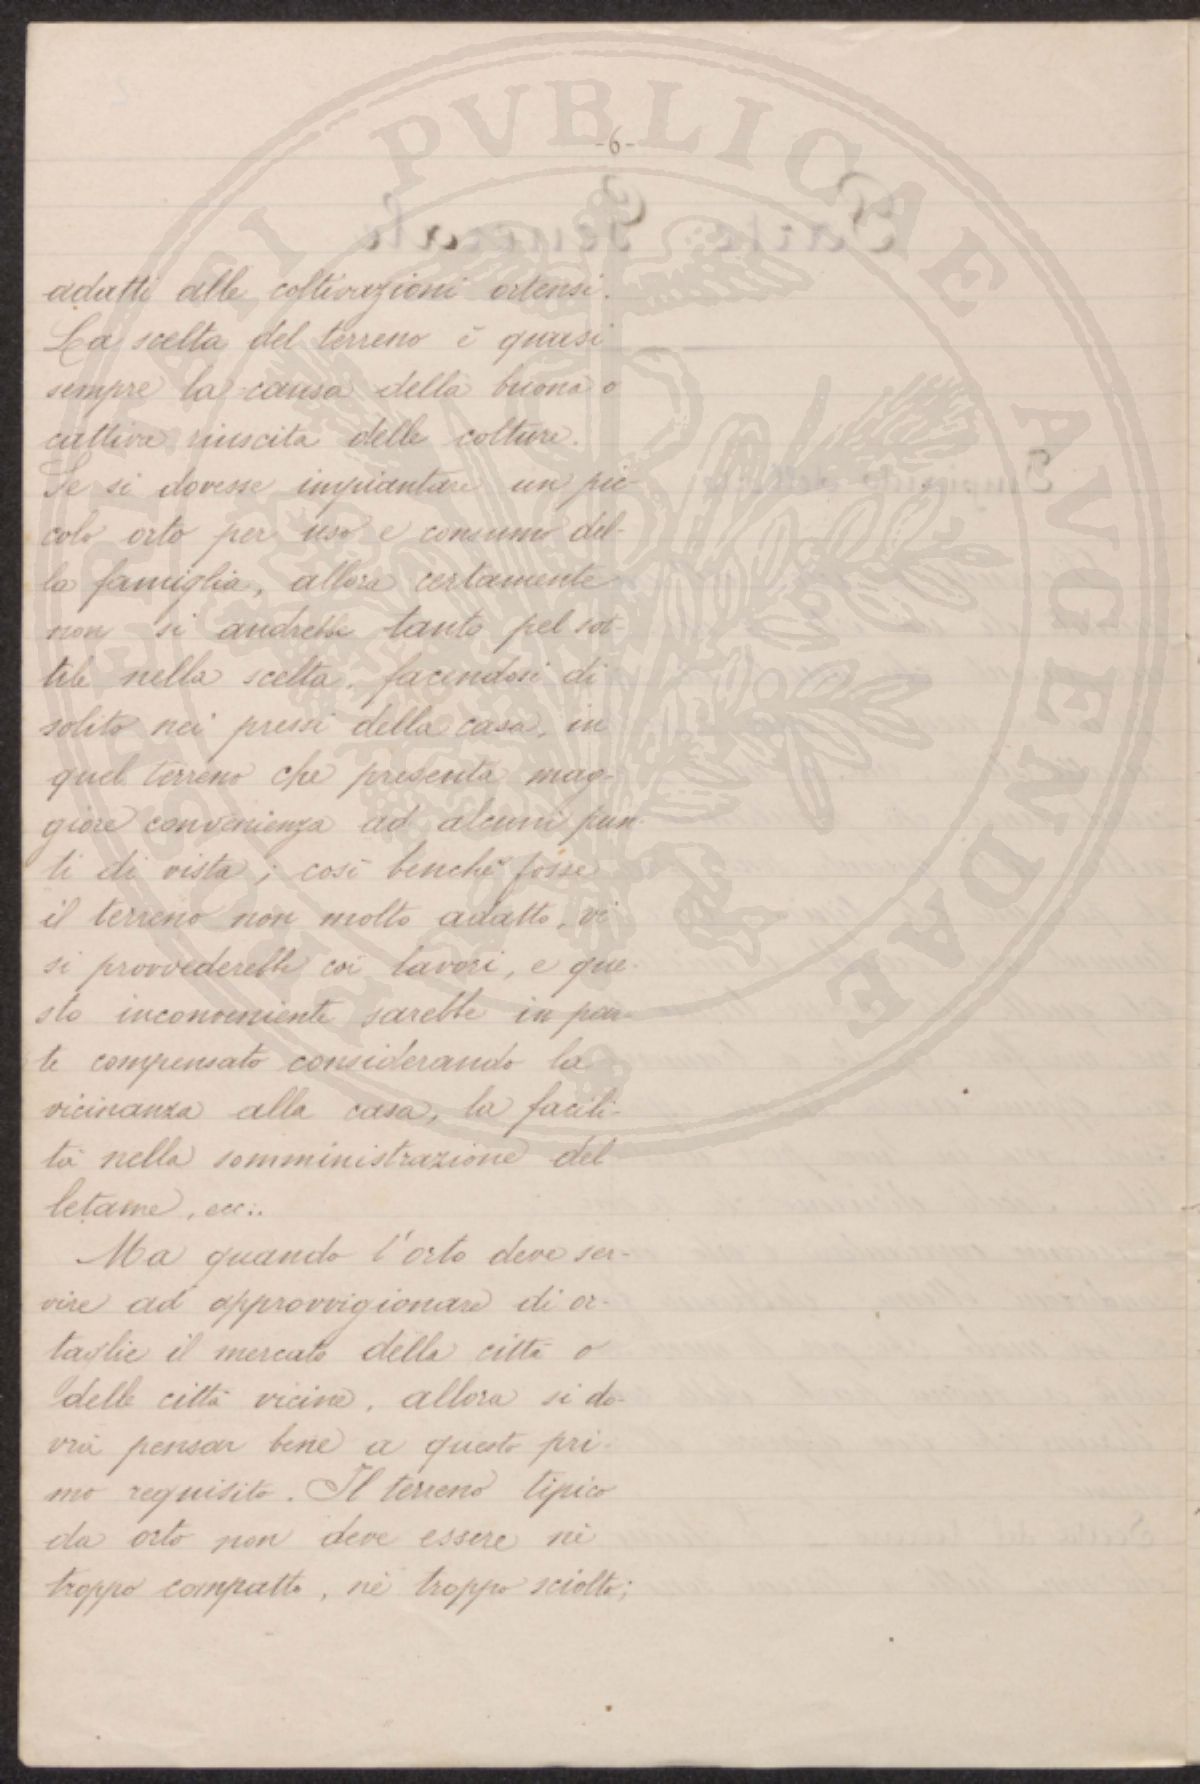 -6-
adatti alle coltivazioni ortensi.
La scelta del terreno è quasi
sempre la causa della buona o
cattiva riuscita delle colture.
Se si dovesse impiantare un pic-
colo orto per uso e consumo del-
la famiglia, allora certamente
non si andrebbe tanto pel sot-
tile nella scelta, facendosi di
solito nei pressi della casa, in
quel terreno che presenta mag-
giore convenienza ad alcuni pun-
ti di vista; così benchè fosse
il terreno non molto adatto, vi
si provvederebbe coi lavori, e que-
sto inconveniente sarebbe in par-
te compensato considerando la
vicinanza alla casa, la facili-
tà nella somministrazione del
letame, ecc..
Ma quando l'orto deve ser-
vire ad approvvigionare di or-
taglie il mercato della città o
delle città vicine, allora si do-
vrà pensar bene a questo pri-
mo requisito. Il terreno tipico
da orto non deve essere nè
troppo compatto, nè troppo sciolto;
PVBLICAE AVGENDAE